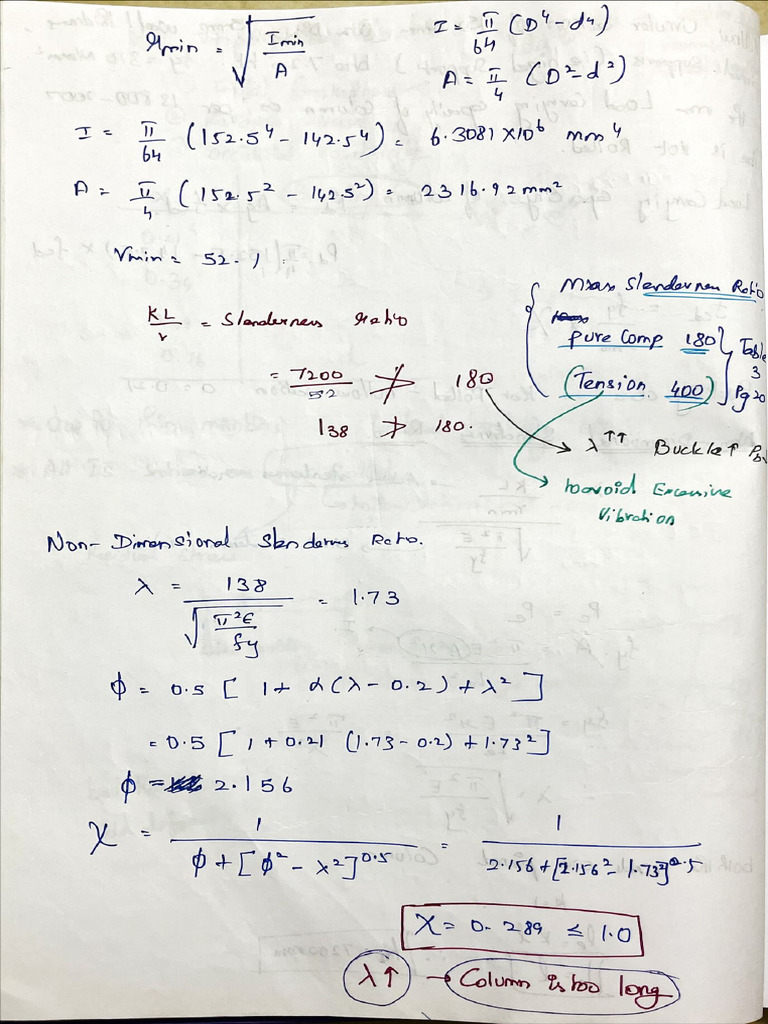 rmin = √(Imin / A)
I = π/64 (D⁴ - d⁴)
A = π/4 (D² - d²)
I = π/64 (152.5⁴ - 142.5⁴) = 6.3081 × 10⁶ mm⁴
A = π/4 (152.5² - 142.5²) = 2316.92 mm²
rmin = 52.1
KL/r = Slenderness ratio
= 7200/52 ≯ 180
138 ≯ 180.
Max Slenderness Ratio
pure Comp 180
(Tension 400)
Table 3 Pg 20
λ↑↑ Buckle↑
to avoid Excessive
Vibration
Non-Dimensional Slenderness Ratio.
λ = 138 / √(π²E/fy) = 1.73
ϕ = 0.5 [1 + α(λ - 0.2) + λ²]
= 0.5 [1 + 0.21 (1.73 - 0.2) + 1.73²]
ϕ = 2.156
χ = 1 / (ϕ + [ϕ² - λ²]^0.5) = 1 / (2.156 + [2.156² - 1.73²]^0.5)
χ = 0.289 ≤ 1.0
λ↑ → Column is too long